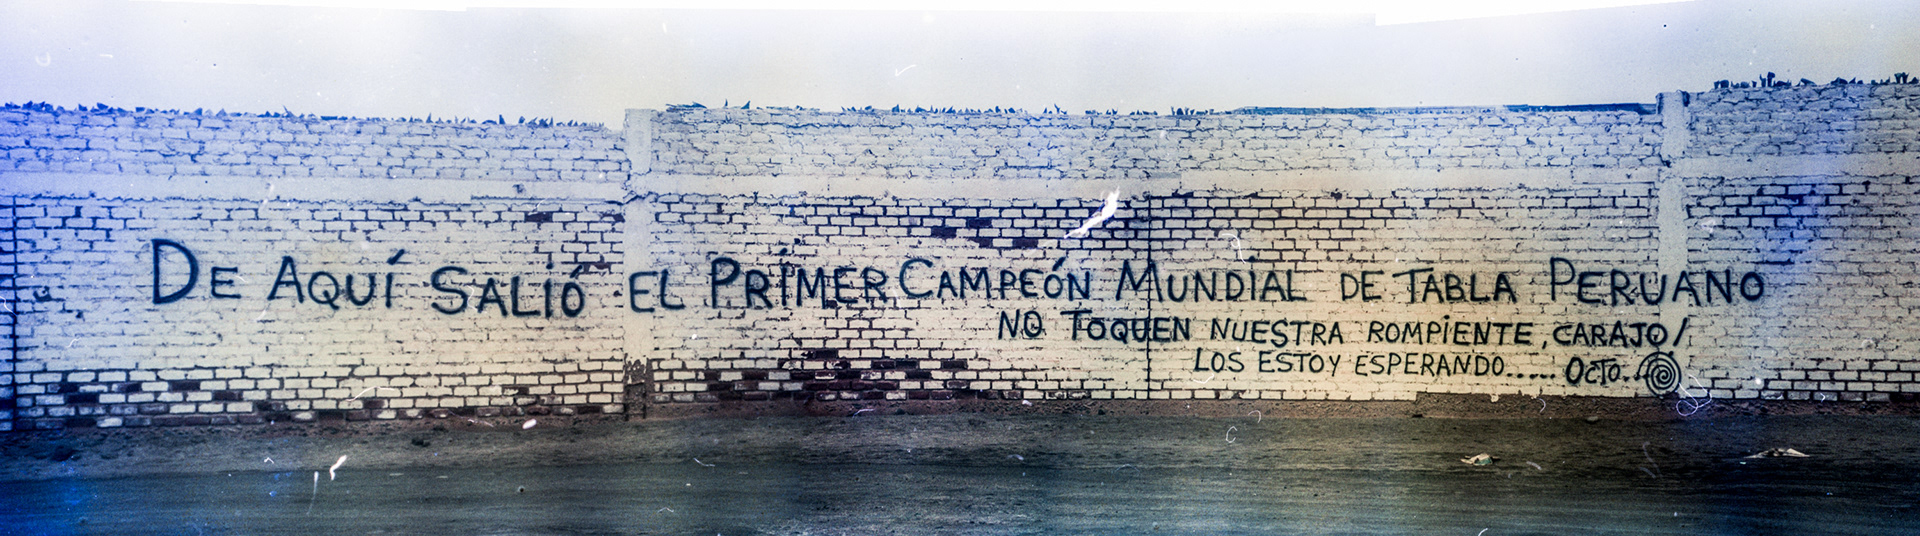 DE AQUÍ SALIÓ EL PRIMER CAMPEÓN MUNDIAL DE TABLA PERUANO
NO TOQUEN NUESTRA ROMPIENTE, CARAJO/
LOS ESTOY ESPERANDO..... OCTO..